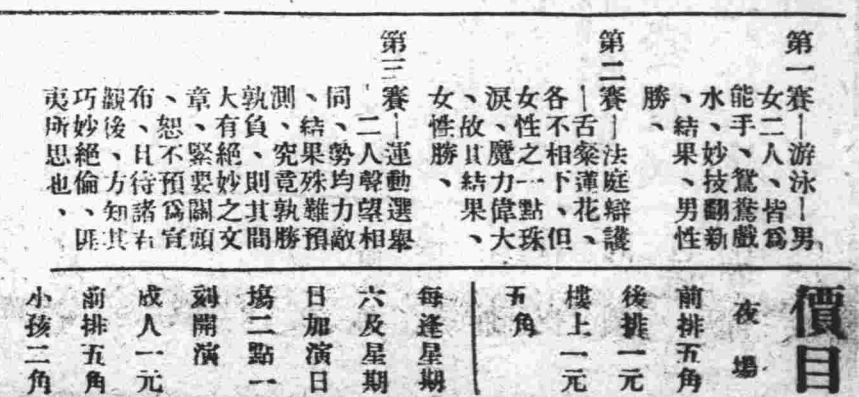 第一賽—游泳—男
女二人、皆爲
能手、鴛鴦戲
水、妙技翻新
、結果、男性
勝、
第二賽—法庭辯護
—舌粲蓮花、
各不相下、但
女性之一點珠
淚、魔力偉大
、故其結果、
女性勝、
第三賽—運動選舉
—二人聲望相
同、勢均力敵
、結果殊難預
測、究竟孰勝
孰負、則其間
大有絕妙之文
章、緊要關頭
、恕不預爲宣
布、且待諸君
觀後、方知其
巧妙絕倫、匪
夷所思也、
價目
夜場
前排五角
後排一元
樓上一元
五角
每逢星期
六及星期
日加演日
場二點一
刻開演
成人一元
前排五角
小孩二角